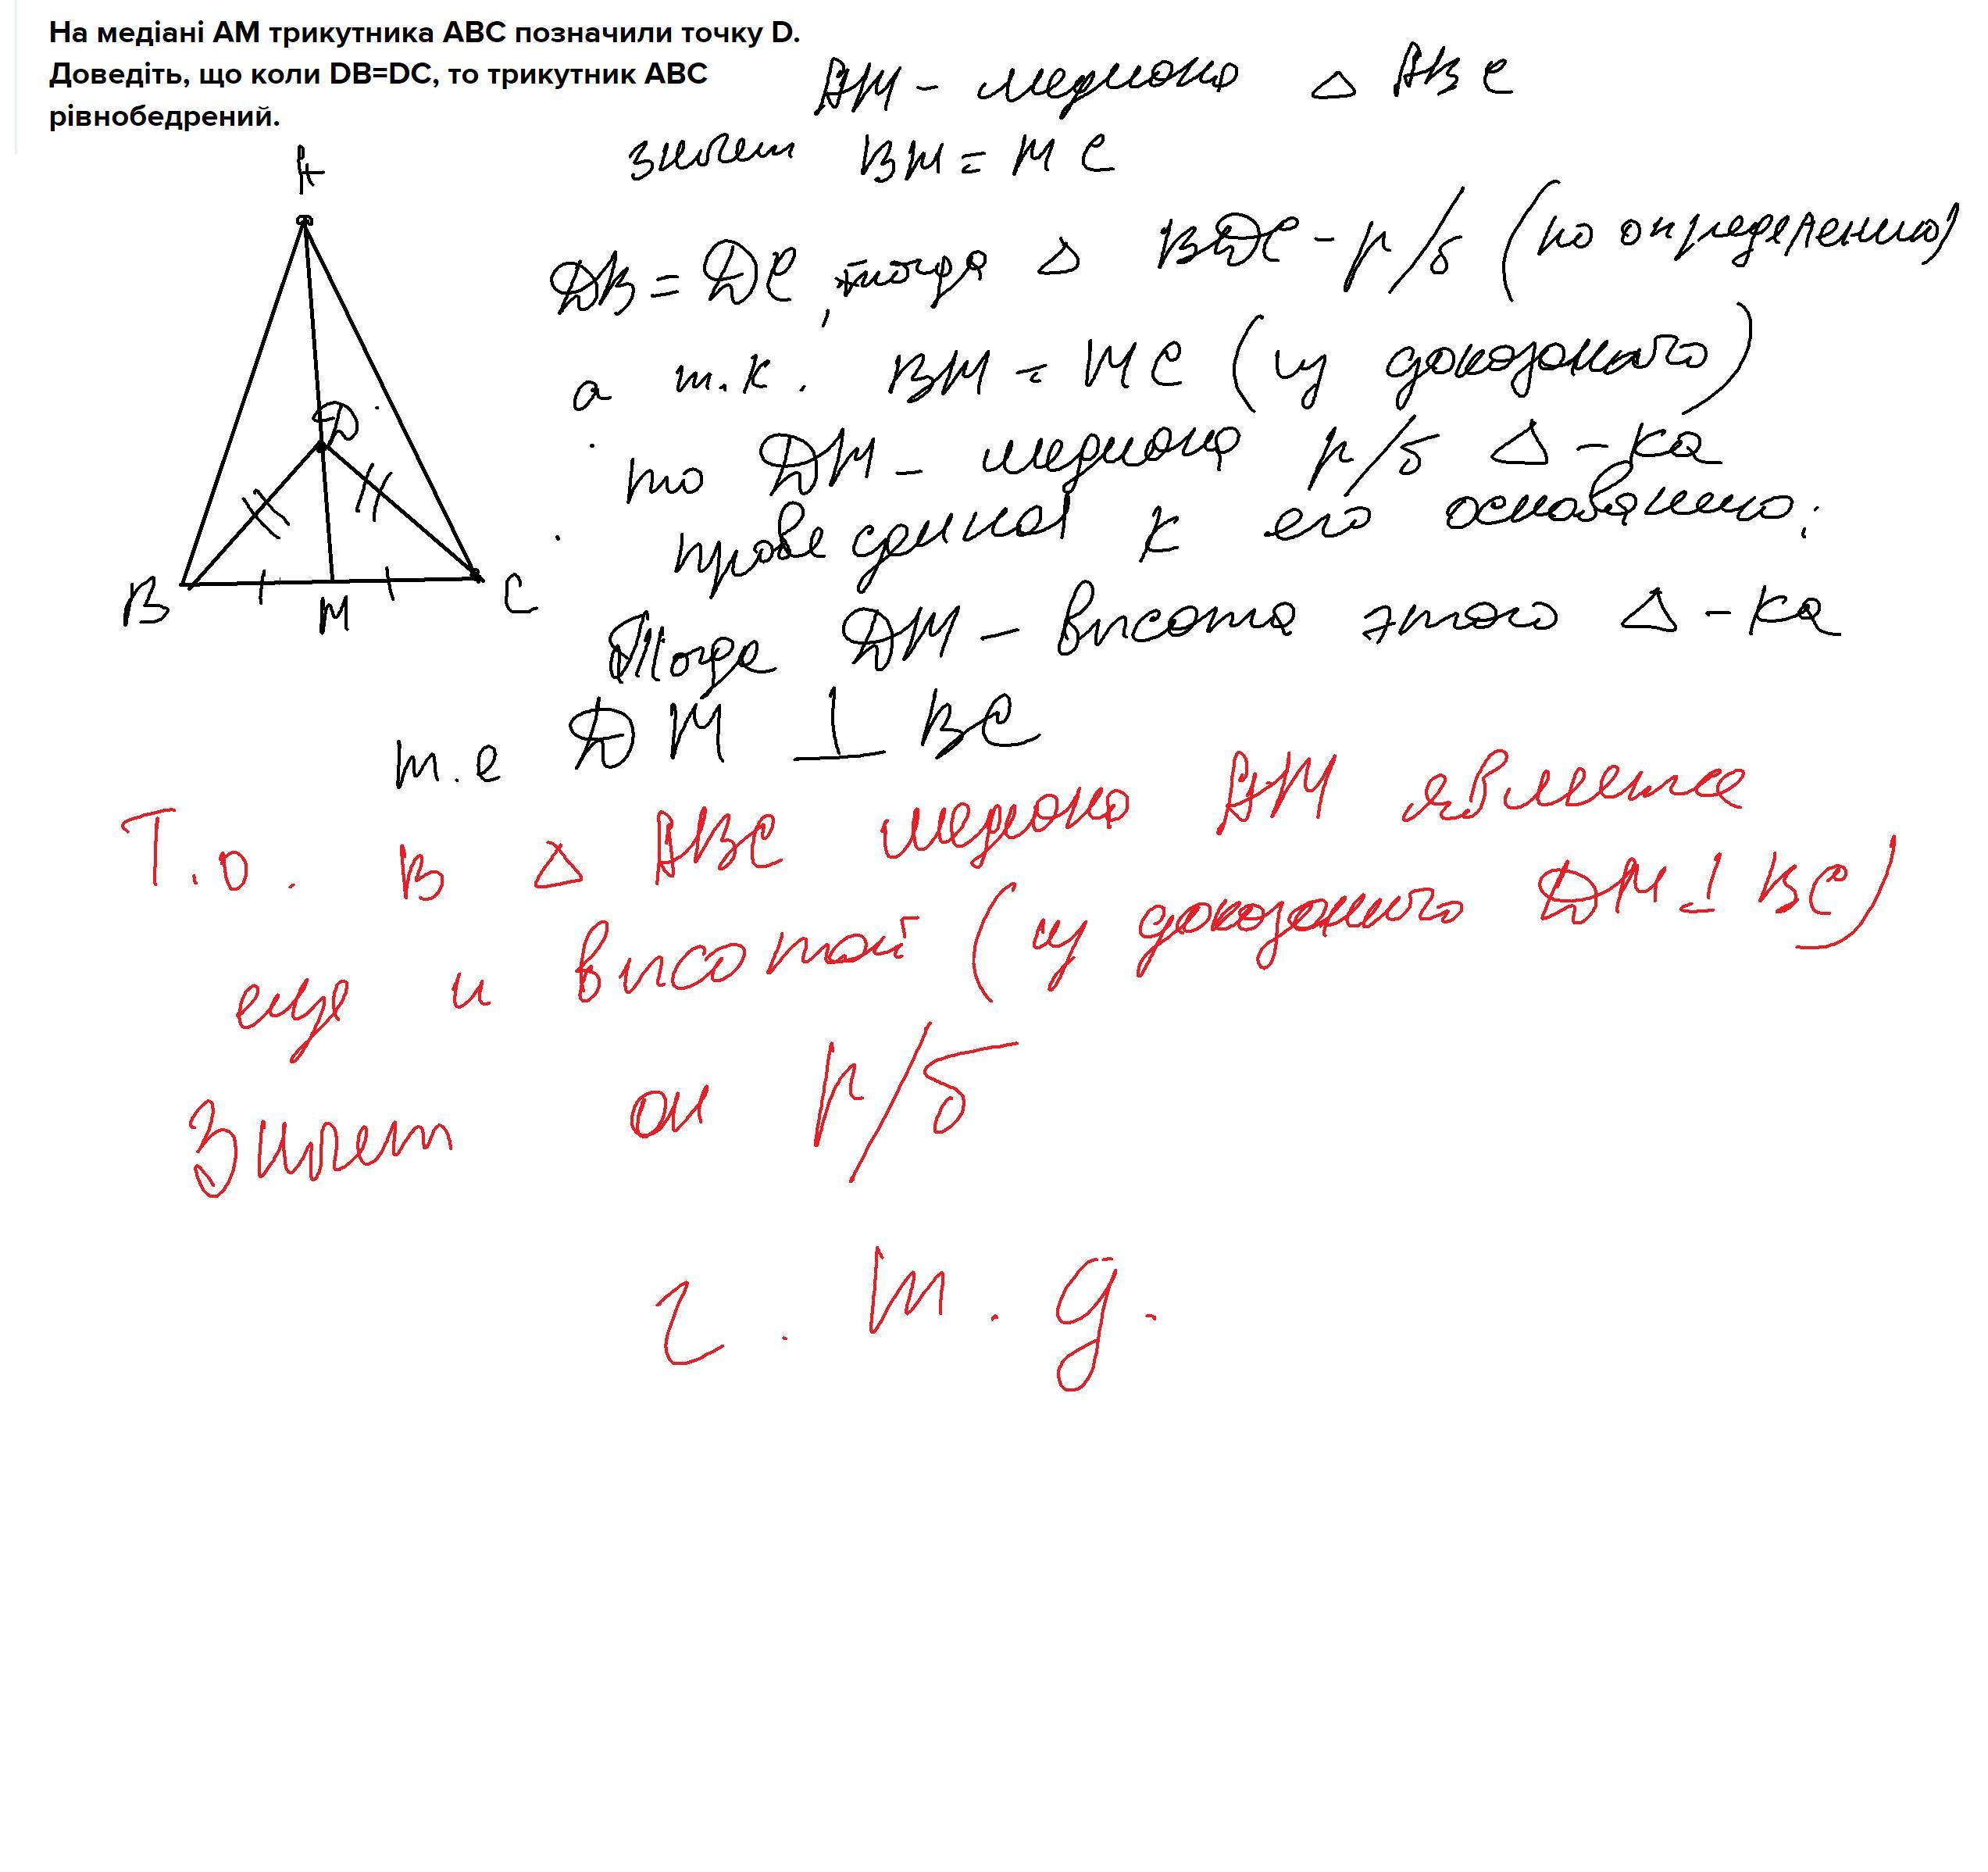 На медіані АМ трикутника АВС позначили точку D.
Доведіть, що коли DB=DC, то трикутник АВС
рівнобедрений.
АМ - медиана △ АВС
значит ВМ = МС
DB = DC, тогда △ BDC - р/б (по определению)
а т.к. ВМ = МС (из доказанного)
то DM - медиана р/б △-ка
проведенная к его основанию.
Тогда DM - высота этого △-ка
т.е DM ⊥ BC
A
D
B
M
C
Т.о. в △ АВС медиана АМ является
еще и высотой (из доказанного DM ⊥ BC)
Значит он р/б
ч. т. д.